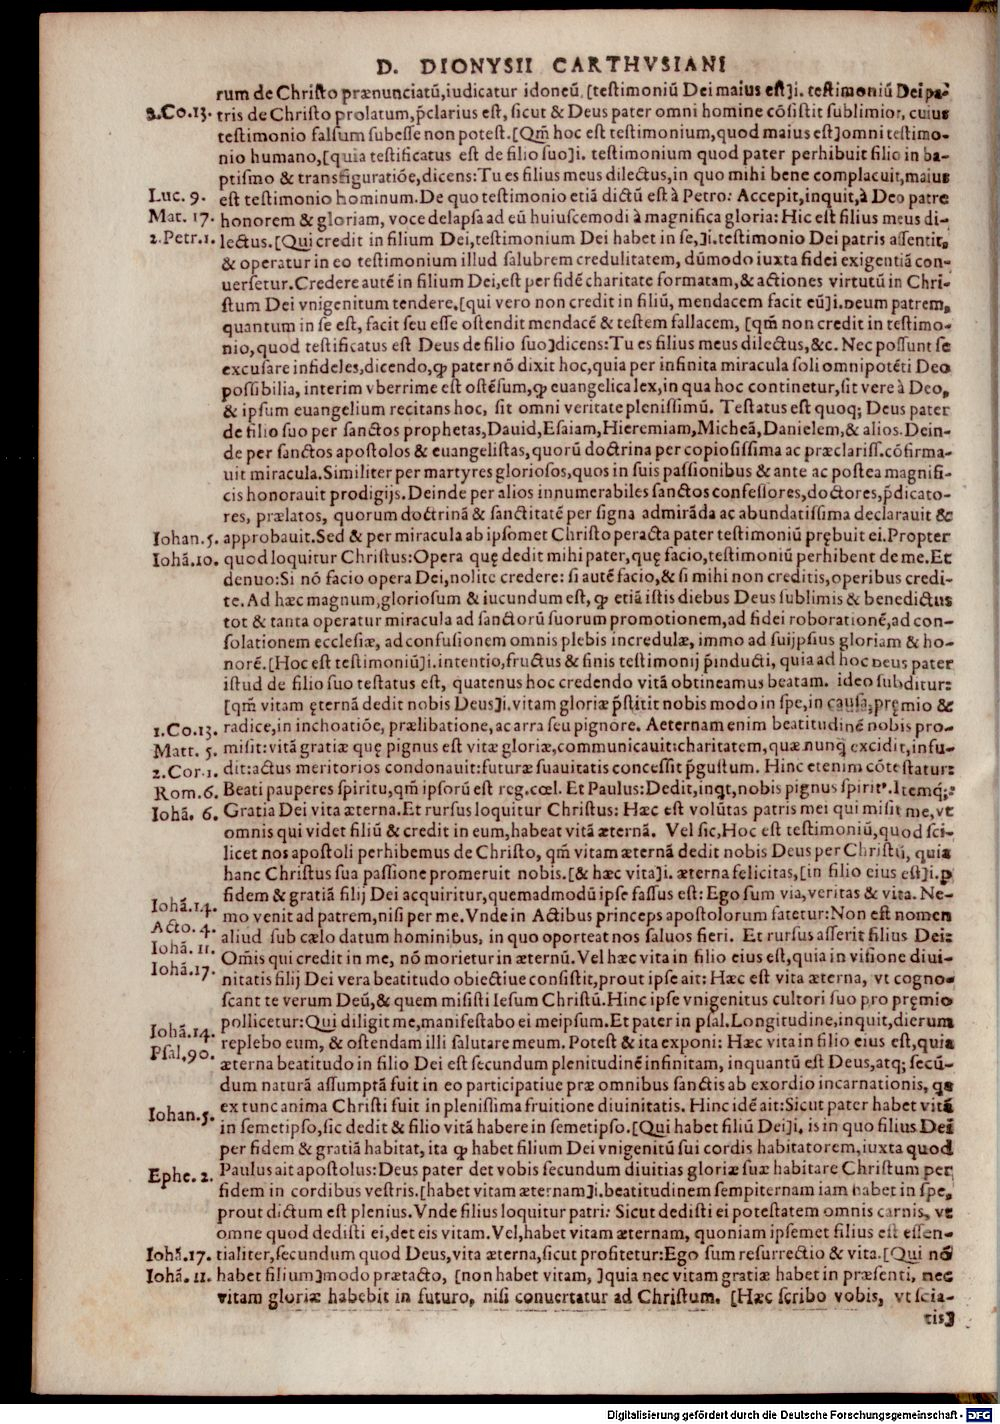 D. DIONYSII CARTHVSIANI
rum de Christo prænunciatū, iudicatur idoneū, [testimoniū Dei maius est] i. testimoniū Dei pa-
2. Co. 13. tris de Christo prolatum, p̄clarius est, sicut & Deus pater omni homine cōsistit sublimior, cuius
testimonio falsum subesse non potest. [Qm̄ hoc est testimonium, quod maius est] omni testimo-
nio humano, [quia testificatus est de filio suo] i. testimonium quod pater perhibuit filio in ba-
ptismo & transfiguratiōe, dicens: Tu es filius meus dilectus, in quo mihi bene complacuit, maius
Luc. 9. est testimonio hominum. De quo testimonio etiā dictū est à Petro: Accepit, inquit, à Deo patre
Mat. 17. honorem & gloriam, voce delapsa ad eū huiuscemodi à magnifica gloria: Hic est filius meus di-
2. Petr. 1. lectus. [Qui credit in filium Dei, testimonium Dei habet in se,] i. testimonio Dei patris assentit,
& operatur in eo testimonium illud salubrem credulitatem, dūmodo iuxta fidei exigentiā con-
uersetur. Credere autē in filium Dei, est per fidē charitate formatam, & actiones virtutū in Chri-
stum Dei vnigenitum tendere. [qui vero non credit in filiū, mendacem facit eū] i. Deum patrem,
quantum in se est, facit seu esse ostendit mendacē & testem fallacem, [qm̄ non credit in testimo-
nio, quod testificatus est Deus de filio suo] dicens: Tu es filius meus dilectus, &c. Nec possunt se
excusare infideles, dicendo, ꝙ pater nō dixit hoc, quia per infinita miracula soli omnipotēti Deo
possibilia, interim vberrime est ostēsum, ꝙ euangelica lex, in qua hoc continetur, sit vere à Deo,
& ipsum euangelium recitans hoc, sit omni veritate plenissimū. Testatus est quoq; Deus pater
de filio suo per sanctos prophetas, Dauid, Esaiam, Hieremiam, Micheā, Danielem, & alios. Dein-
de per sanctos apostolos & euangelistas, quorū doctrina per copiosissima ac præclariss. cōfirma-
uit miracula. Similiter per martyres gloriosos, quos in suis passionibus & ante ac postea magnifi-
cis honorauit prodigijs. Deinde per alios innumerabiles sanctos confessores, doctores, p̄dicato-
res, prælatos, quorum doctrinā & sanctitatē per signa admirāda ac abundatissima declarauit &
Iohan. 5. approbauit. Sed & per miracula ab ipsomet Christo peracta pater testimoniū prębuit ei. Propter
Iohā. 10. quod loquitur Christus: Opera quę dedit mihi pater, quę facio, testimoniū perhibent de me. Et
denuo: Si nō facio opera Dei, nolite credere: si autē facio, & si mihi non creditis, operibus credi-
te. Ad hæc magnum, gloriosum & iucundum est, ꝙ etiā istis diebus Deus sublimis & benedictus
tot & tanta operatur miracula ad sanctorū suorum promotionem, ad fidei roborationē, ad con-
solationem ecclesiæ, ad confusionem omnis plebis incredulæ, immo ad suijpsius gloriam & ho-
norē. [Hoc est testimoniū] i. intentio, fructus & finis testimonij p̄inducti, quia ad hoc Deus pater
istud de filio suo testatus est, quatenus hoc credendo vitā obtineamus beatam. ideo subditur:
[qm̄ vitam ęternā dedit nobis Deus] i. vitam gloriæ p̄stitit nobis modo in spe, in causa, pręmio &
1. Co. 13. radice, in inchoatiōe, prælibatione, ac arra seu pignore. Aeternam enim beatitudinē nobis pro-
Matt. 5. misit: vitā gratiæ quę pignus est vitæ gloriæ, communicauit: charitatem, quæ nunq̄ excidit, infu-
2. Cor. 1. dit: actus meritorios condonauit: futuræ suauitatis concessit p̄gustum. Hinc etenim cōtestatur:
Rom. 6. Beati pauperes spiritu, qm̄ ipsorū est reg. cœl. Et Paulus: Dedit, inqt, nobis pignus spirit⁹. Itemq́;:
Iohā. 6. Gratia Dei vita æterna. Et rursus loquitur Christus: Hæc est volūtas patris mei qui misit me, vt
omnis qui videt filiū & credit in eum, habeat vitā æternā. Vel sic, Hoc est testimoniū, quod sci-
licet nos apostoli perhibemus de Christo, qm̄ vitam æternā dedit nobis Deus per Christū, quia
hanc Christus sua passione promeruit nobis. [& hæc vita] i. æterna felicitas, [in filio eius est] i. ꝑ
fidem & gratiā filij Dei acquiritur, quemadmodū ipse fassus est: Ego sum via, veritas & vita. Ne-
Iohā. 14. mo venit ad patrem, nisi per me. Vnde in Actibus princeps apostolorum fatetur: Non est nomen
Acto. 4. aliud sub cælo datum hominibus, in quo oporteat nos saluos fieri. Et rursus asserit filius Dei:
Iohā. 11. Om̄is qui credit in me, nō morietur in æternū. Vel hæc vita in filio eius est, quia in visione diui-
Iohā. 17. nitatis filij Dei vera beatitudo obiectiue consistit, prout ipse ait: Hæc est vita æterna, vt cogno-
scant te verum Deū, & quem misisti Iesum Christū. Hinc ipse vnigenitus cultori suo pro pręmio
Iohā. 14. pollicetur: Qui diligit me, manifestabo ei meipsum. Et pater in psal. Longitudine, inquit, dierum
Psal. 90. replebo eum, & ostendam illi salutare meum. Potest & ita exponi: Hæc vita in filio eius est, quia
æterna beatitudo in filio Dei est secundum plenitudinē infinitam, inquantū est Deus, atq; secū-
dum naturā assumptā fuit in eo participatiue præ omnibus sanctis ab exordio incarnationis, qa
Iohan. 5. ex tunc anima Christi fuit in plenissima fruitione diuinitatis. Hinc idē ait: Sicut pater habet vitā
in semetipso, sic dedit & filio vitā habere in semetipso. [Qui habet filiū Dei] i. is in quo filius Dei
per fidem & gratiā habitat, ita ꝙ habet filium Dei vnigenitū sui cordis habitatorem, iuxta quod
Ephe. 2. Paulus ait apostolus: Deus pater det vobis secundum diuitias gloriæ suæ habitare Christum per
fidem in cordibus vestris. [habet vitam æternam] i. beatitudinem sempiternam iam habet in spe,
prout dictum est plenius. Vnde filius loquitur patri: Sicut dedisti ei potestatem omnis carnis, vt
omne quod dedisti ei, det eis vitam. Vel, habet vitam æternam, quoniam ipsemet filius est essen-
Iohā. 17. tialiter, secundum quod Deus, vita æterna, sicut profitetur: Ego sum resurrectio & vita. [Qui nō
Iohā. 11. habet filium] modo prætacto, [non habet vitam, ] quia nec vitam gratiæ habet in præsenti, nec
vitam gloriæ habebit in futuro, nisi conuertatur ad Christum. [Hæc scribo vobis, vt scia-
tis]
Digitalisierung gefördert durch die Deutsche Forschungsgemeinschaft - DFG